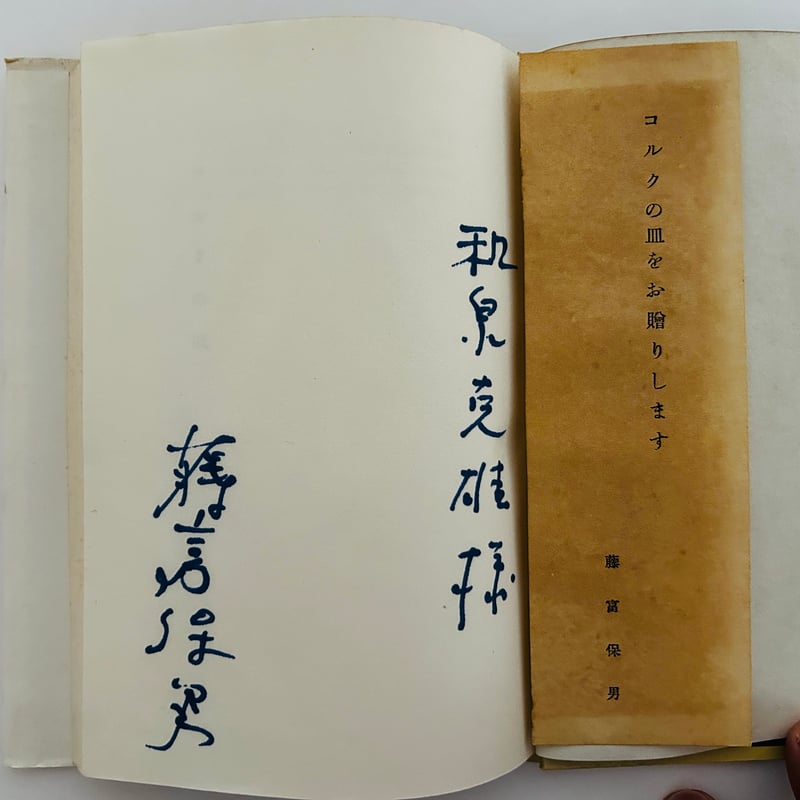 コルクの皿をお贈りします
藤富保男
和泉克雄様
藤富保男